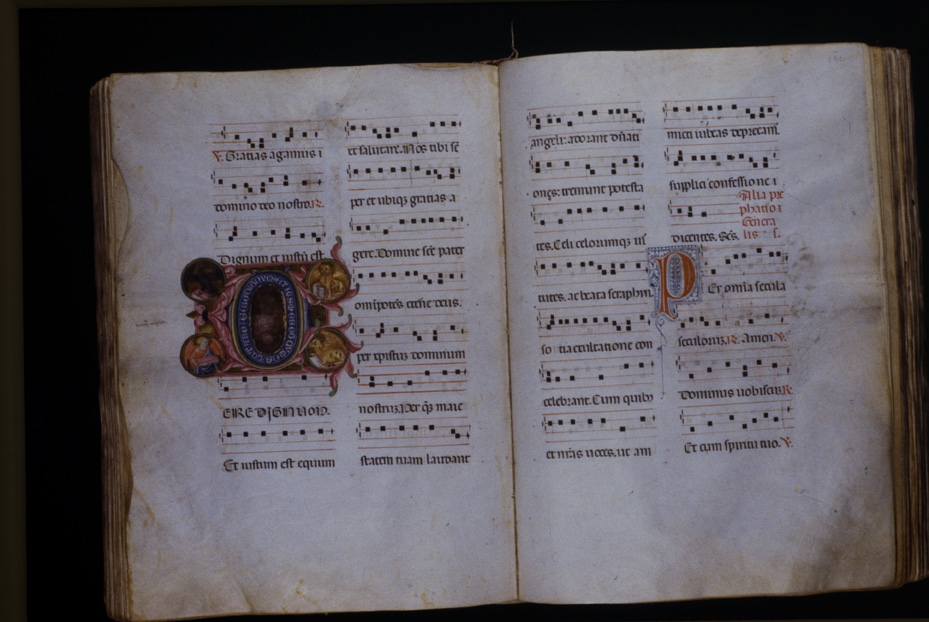 ℣. Gratias agamus
domino deo nostro ℟.
Dignum et iustū est
ERE DIGNUM.
Et iustum est equum
et salutare. Nos tibi sē
per et ubiqȝ gratias a
gere. Domine scē pater
omīpotēs etēne deus.
per xpistuȝ dominum
nostruȝ. Per qȝ maie
statem tuam laudant
angeli: adorant dn̄ati
ones: tremunt potesta
tes. Celi celorumqȝ uir
tutes. ac beata seraphin
socia exultatione con
celebrant. Cum quibȝ
et nr̄as uoces. ut am
mitti iubeas deprecam̄.
supplici confessione
dicentes. Sc̄s.
Alia pre
phatio
genera
lis
P Er omīa secula
seculoruȝ ℟. amen. ℣.
Dominus uobiscuȝ ℟.
Et cum spiritu tuo. ℣.